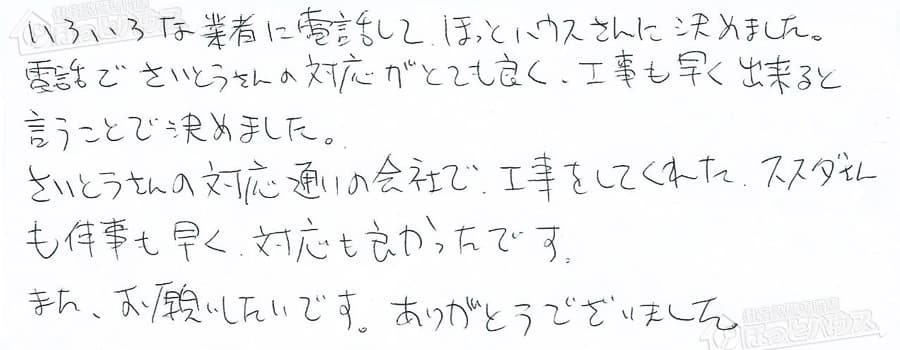 いろいろな業者に電話して、ほっとハウスさんに決めました。
電話でさいとうさんの対応がとても良く、工事も早く出来ると
言うことで決めました。
さいとうさんの対応通りの会社で、工事をしてくれた、ススダさん
も仕事も早く、対応も良かったです。
また、お願いしたいです。ありがとうございました。
ほっとハウス